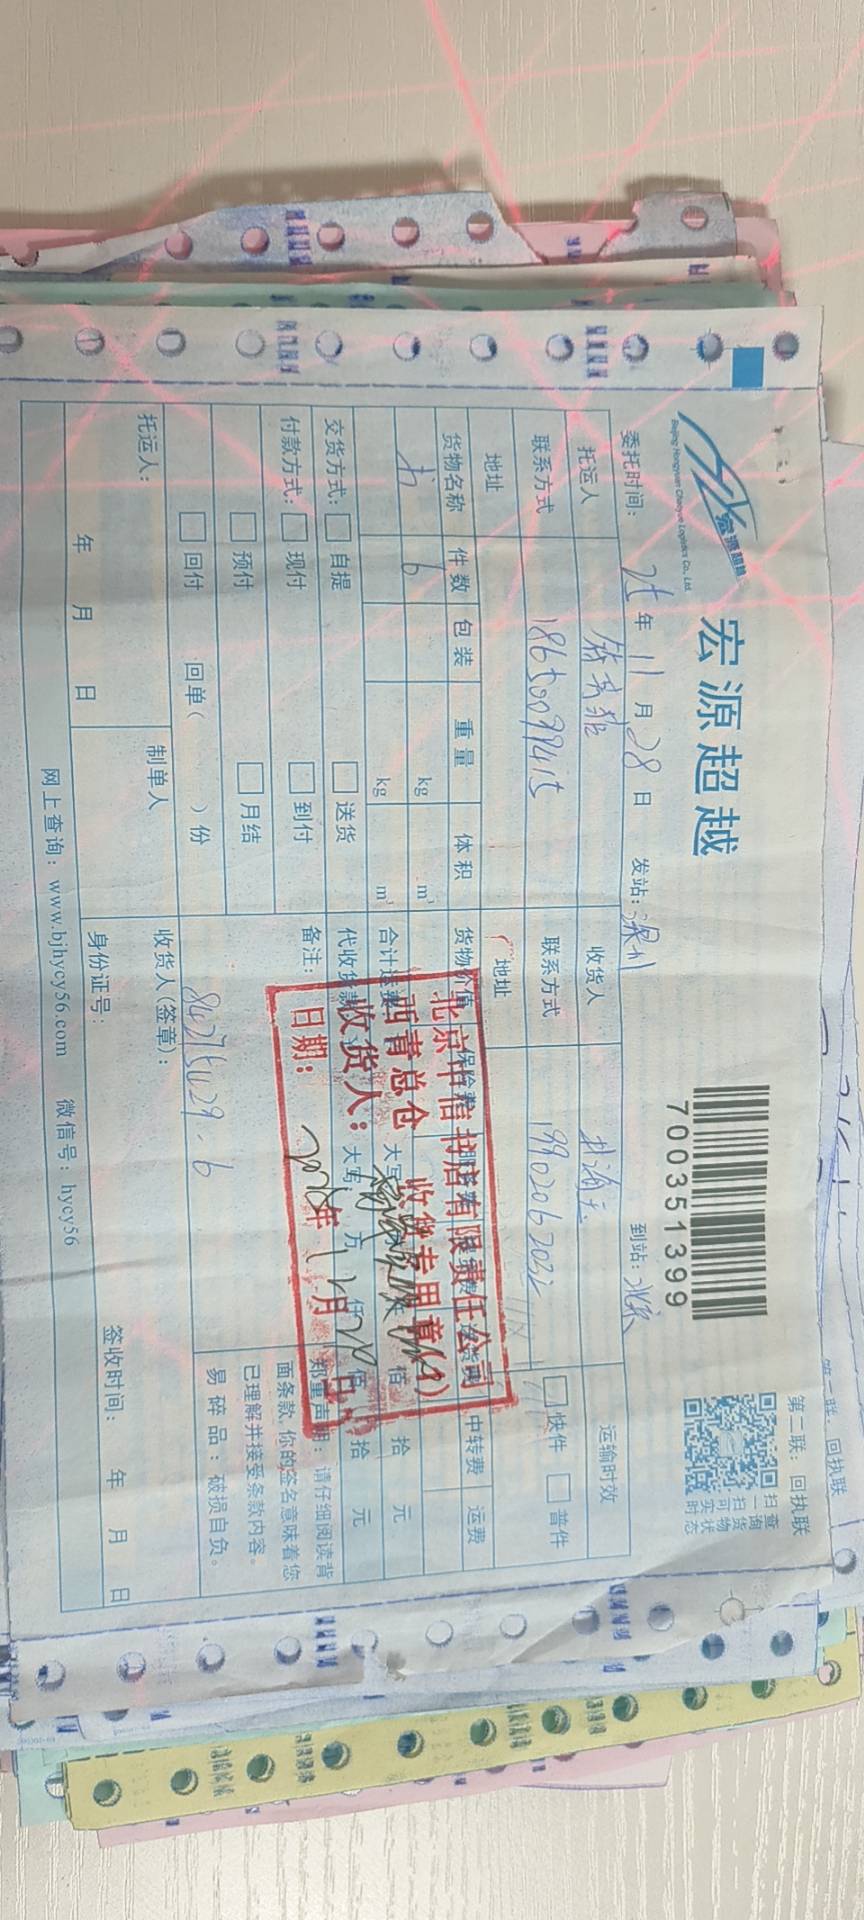 第二联：回执联
第二联：回执联
宏源超越
宏源超越
Beijing Hongyuan Chaoyue Logistics Co., Ltd.
700351399
扫一扫可实时
查询货物状态
委托时间： 25 年 11 月 28 日 发站： 深圳 到站： 北京
托运人 收货人 运输时效
联系方式 18650099415 联系方式 19902062032 快件 普件
地址 地址
货物名称 件数 包装 重量 体积 货物价值 保险费 中转费 运费
书 6 kg m³
kg m³ 合计运费 大写 佰 拾 元
交货方式： 自提 送货 代收货款 大写： 万 仟 佰 拾 元
付款方式： 现付 到付 备注：
预付 月结
回付 回单（ ）份
8425429-6
郑重声明：请仔细阅读背
面条款，你的签名意味着您
已理解并接受条款内容。
易碎品：破损自负。
托运人： 制单人 收货人(签章)：
年 月 日 身份证号： 签收时间： 年 月 日
网上查询：www.bjhycy56.com 微信号：hycy56
书店有限责任公司
西青总仓 收货专用章
收货人：
日期： 年 月 日